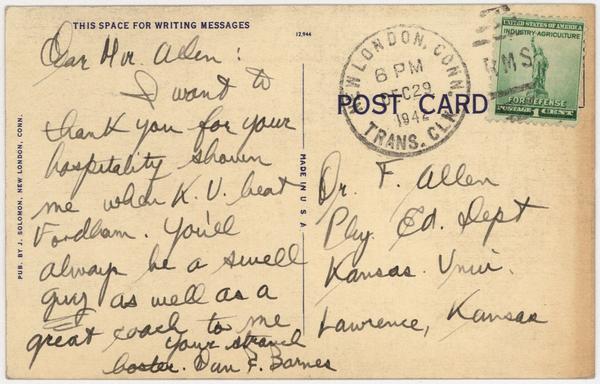 THIS SPACE FOR WRITING MESSAGES
12,944
Dear Mr. Allen:
I want to
thank you for your
hospitality shown
me when K.U. beat
Fordham. You'll
always be a swell
guy as well as a
great coach to me
your staunch
booster. Dan F. Barnes
PUB. BY J. SOLOMON, NEW LONDON, CONN.
MADE IN U.S.A.
NEW LONDON, CONN.
6 PM
DEC 29
1942
TRANS. CLK.
RMS
UNITED STATES OF AMERICA
INDUSTRY-AGRICULTURE
FOR DEFENSE
POSTAGE 1 CENT
POST CARD
Dr. F. Allen
Phy. Ed. Dept
Kansas. Univ.
Lawrence, Kansas